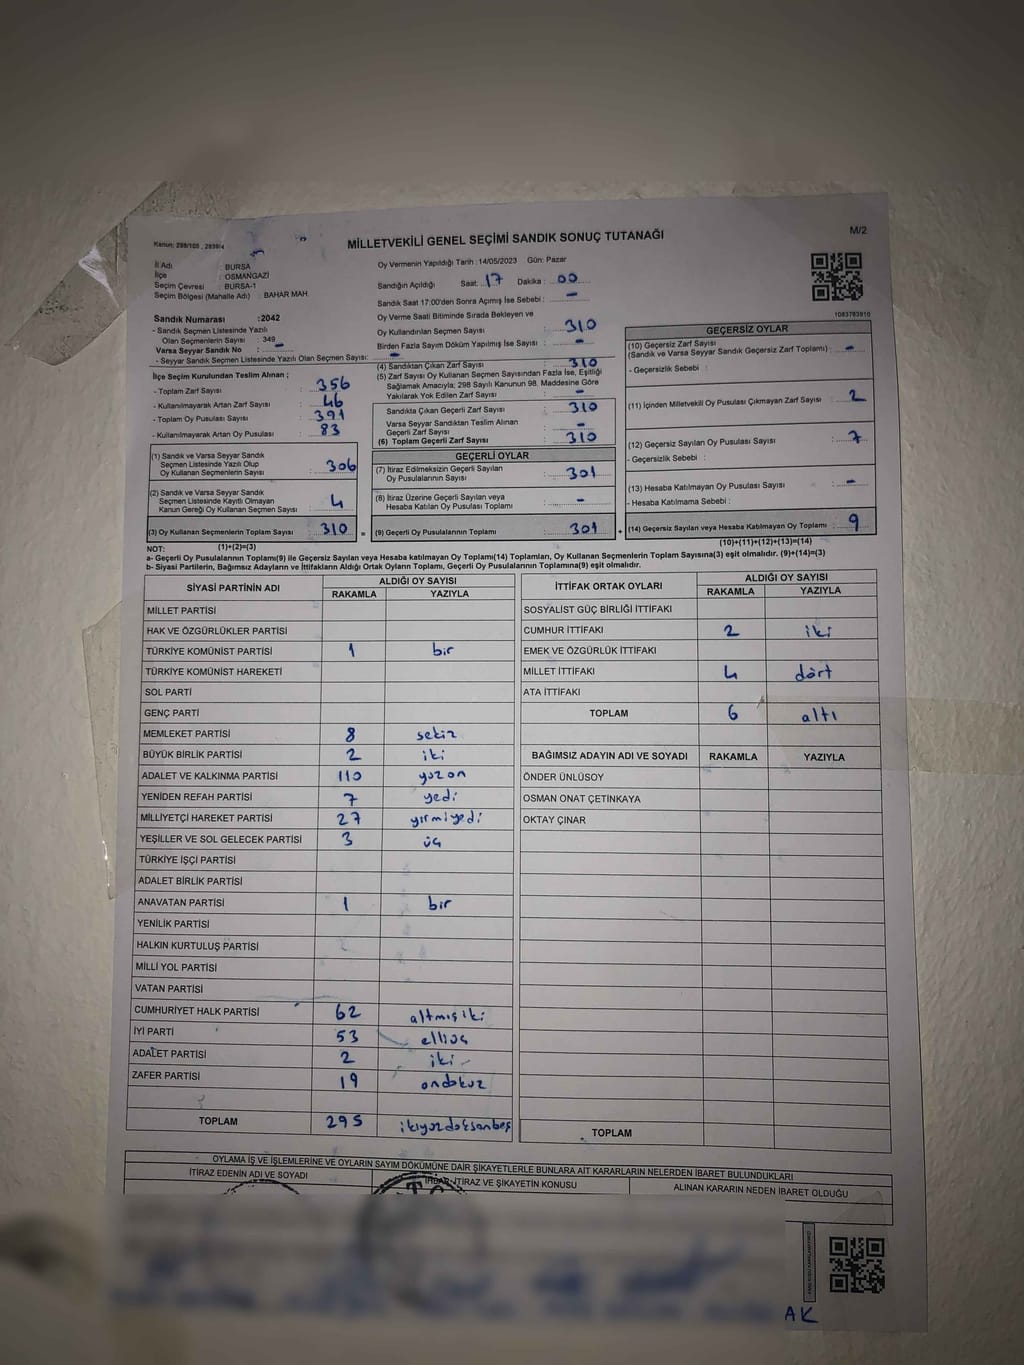 Kanun: 298/105 , 2839/4
MİLLETVEKİLİ GENEL SEÇİMİ SANDIK SONUÇ TUTANAĞI
M/2
İl Adı : BURSA
İlçe : OSMANGAZİ
Seçim Çevresi : BURSA-1
Seçim Bölgesi (Mahalle Adı) : BAHAR MAH
Sandık Numarası :2042
- Sandık Seçmen Listesinde Yazılı
Olan Seçmenlerin Sayısı : 349
Varsa Seyyar Sandık No : -
- Seyyar Sandık Seçmen Listesinde Yazılı Olan Seçmen Sayısı: -
Oy Vermenin Yapıldığı Tarih :14/05/2023 Gün: Pazar
Sandığın Açıldığı Saat: 17 Dakika : 00
Sandık Saat 17:00'den Sonra Açımış İse Sebebi : -
Oy Verme Saati Bitiminde Sırada Bekleyen ve
Oy Kullandırılan Seçmen Sayısı : 310
Birden Fazla Sayım Döküm Yapılmış İse Sayısı : -
1083783910
İlçe Seçim Kurulundan Teslim Alınan ;
- Toplam Zarf Sayısı : 356
- Kullanılmayarak Artan Zarf Sayısı : 46
- Toplam Oy Pusulası Sayısı : 391
- Kullanılmayarak Artan Oy Pusulası : 83
(1) Sandık ve Varsa Seyyar Sandık
Seçmen Listesinde Yazılı Olup
Oy Kullanan Seçmenlerin Sayısı : 306
(2) Sandık ve Varsa Seyyar Sandık
Seçmen Listesinde Kayıtlı Olmayan
Kanun Gereği Oy Kullanan Seçmen Sayısı : 4
(3) Oy Kullanan Seçmenlerin Toplam Sayısı : 310
(1)+(2)=(3)
(4) Sandıktan Çıkan Zarf Sayısı : 310
(5) Zarf Sayısı Oy Kullanan Seçmen Sayısından Fazla İse, Eşitliği
Sağlamak Amacıyla; 298 Sayılı Kanunun 98. Maddesine Göre
Yakılarak Yok Edilen Zarf Sayısı : -
Sandıkta Çıkan Geçerli Zarf Sayısı : 310
Varsa Seyyar Sandıktan Teslim Alınan
Geçerli Zarf Sayısı : -
(6) Toplam Geçerli Zarf Sayısı : 310
GEÇERLİ OYLAR
(7) İtiraz Edilmeksizin Geçerli Sayılan
Oy Pusulalarının Sayısı : 301
(8) İtiraz Üzerine Geçerli Sayılan veya
Hesaba Katılan Oy Pusulası Toplamı : -
= (9) Geçerli Oy Pusulalarının Toplamı : 301
GEÇERSİZ OYLAR
(10) Geçersiz Zarf Sayısı
(Sandık ve Varsa Seyyar Sandık Geçersiz Zarf Toplamı) : -
- Geçersizlik Sebebi :
(11) İçinden Milletvekili Oy Pusulası Çıkmayan Zarf Sayısı : 2
(12) Geçersiz Sayılan Oy Pusulası Sayısı : 7
- Geçersizlik Sebebi :
(13) Hesaba Katılmayan Oy Pusulası Sayısı : -
- Hesaba Katılmama Sebebi :
+ (14) Geçersiz Sayılan veya Hesaba Katılmayan Oy Toplamı : 9
(10)+(11)+(12)+(13)=(14)
NOT:
a- Geçerli Oy Pusulalarının Toplamı(9) ile Geçersiz Sayılan veya Hesaba katılmayan Oy Toplamı(14) Toplamları, Oy Kullanan Seçmenlerin Toplam Sayısına(3) eşit olmalıdır. (9)+(14)=(3)
b- Siyasi Partilerin, Bağımsız Adayların ve İttifakların Aldığı Ortak Oyların Toplamı, Geçerli Oy Pusulalarının Toplamına(9) eşit olmalıdır.
SİYASİ PARTİNİN ADI ALDIĞI OY SAYISI
RAKAMLA YAZIYLA
MİLLET PARTİSİ
HAK VE ÖZGÜRLÜKLER PARTİSİ
TÜRKİYE KOMÜNİST PARTİSİ 1 bir
TÜRKİYE KOMÜNİST HAREKETİ
SOL PARTİ
GENÇ PARTİ
MEMLEKET PARTİSİ 8 sekiz
BÜYÜK BİRLİK PARTİSİ 2 iki
ADALET VE KALKINMA PARTİSİ 110 yüzon
YENİDEN REFAH PARTİSİ 7 yedi
MİLLİYETÇİ HAREKET PARTİSİ 27 yirmiyedi
YEŞİLLER VE SOL GELECEK PARTİSİ 3 üç
TÜRKİYE İŞÇİ PARTİSİ
ADALET BİRLİK PARTİSİ
ANAVATAN PARTİSİ 1 bir
YENİLİK PARTİSİ
HALKIN KURTULUŞ PARTİSİ
MİLLİ YOL PARTİSİ
VATAN PARTİSİ
CUMHURİYET HALK PARTİSİ 62 altmışiki
İYİ PARTİ 53 elliüç
ADALET PARTİSİ 2 iki
ZAFER PARTİSİ 19 ondokuz
TOPLAM 295 ikiyüzdoksanbeş
İTTİFAK ORTAK OYLARI ALDIĞI OY SAYISI
RAKAMLA YAZIYLA
SOSYALİST GÜÇ BİRLİĞİ İTTİFAKI
CUMHUR İTTİFAKI 2 iki
EMEK VE ÖZGÜRLÜK İTTİFAKI
MİLLET İTTİFAKI 4 dört
ATA İTTİFAKI
TOPLAM 6 altı
BAĞIMSIZ ADAYIN ADI VE SOYADI RAKAMLA YAZIYLA
ÖNDER ÜNLÜSOY
OSMAN ONAT ÇETİNKAYA
OKTAY ÇINAR
TOPLAM
OYLAMA İŞ VE İŞLEMLERİNE VE OYLARIN SAYIM DÖKÜMÜNE DAİR ŞİKAYETLERLE BUNLARA AİT KARARLARIN NELERDEN İBARET BULUNDUKLARI
İTİRAZ EDENİN ADI VE SOYADI İHBAR, İTİRAZ VE ŞİKAYETİN KONUSU ALINAN KARARIN NEDEN İBARET OLDUĞU
AK